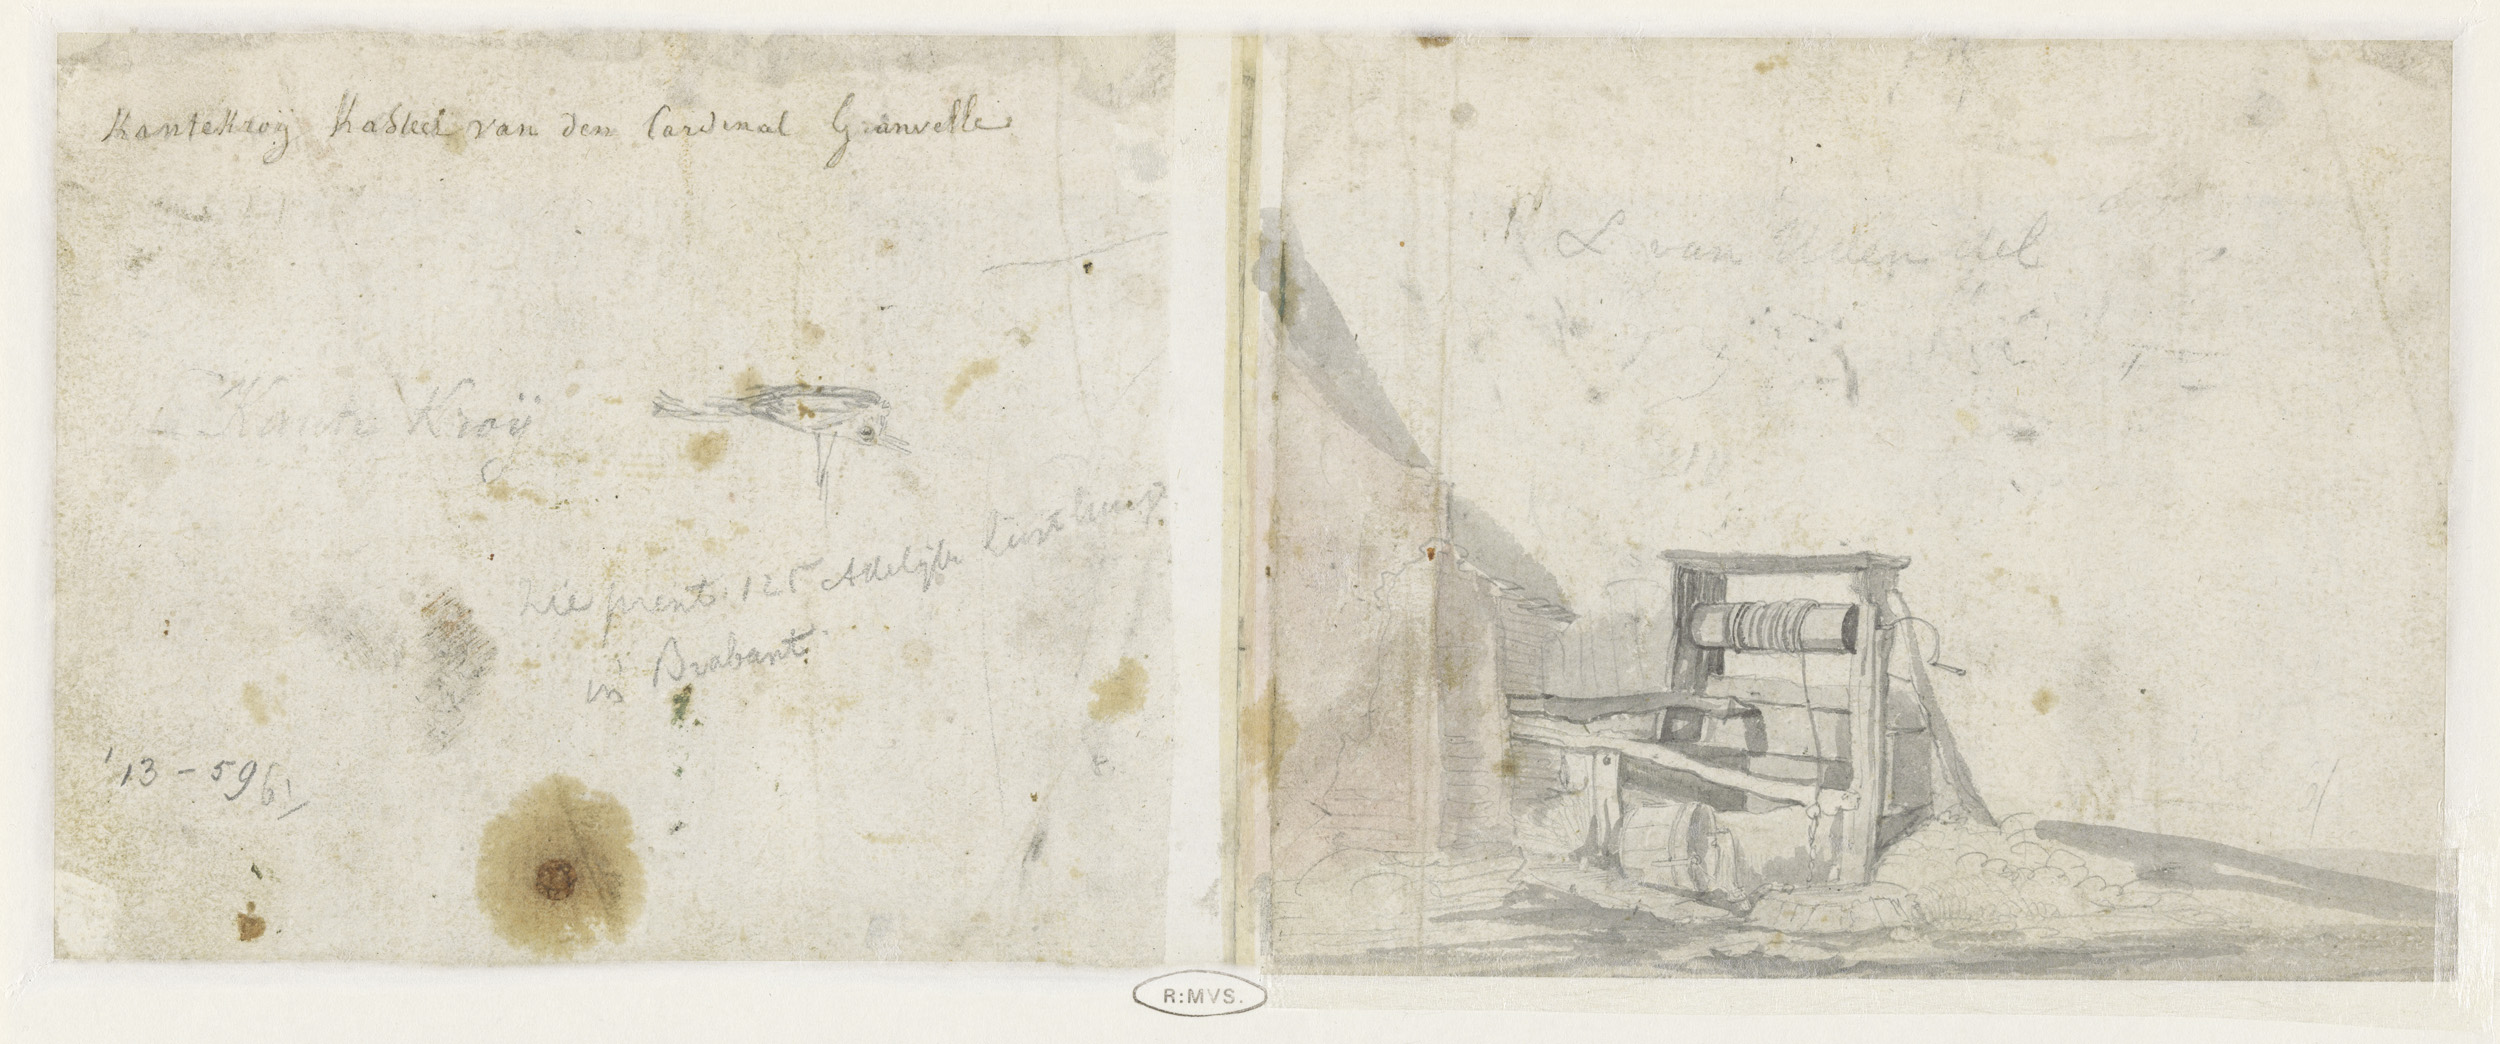 Kantekroÿ Kasteel van den Cardinal Granvelle
Kante Kroÿ
Zie prent 125 Adelijke
in Brabant
'13 - 59 61
L van Uden del
R:MVS.